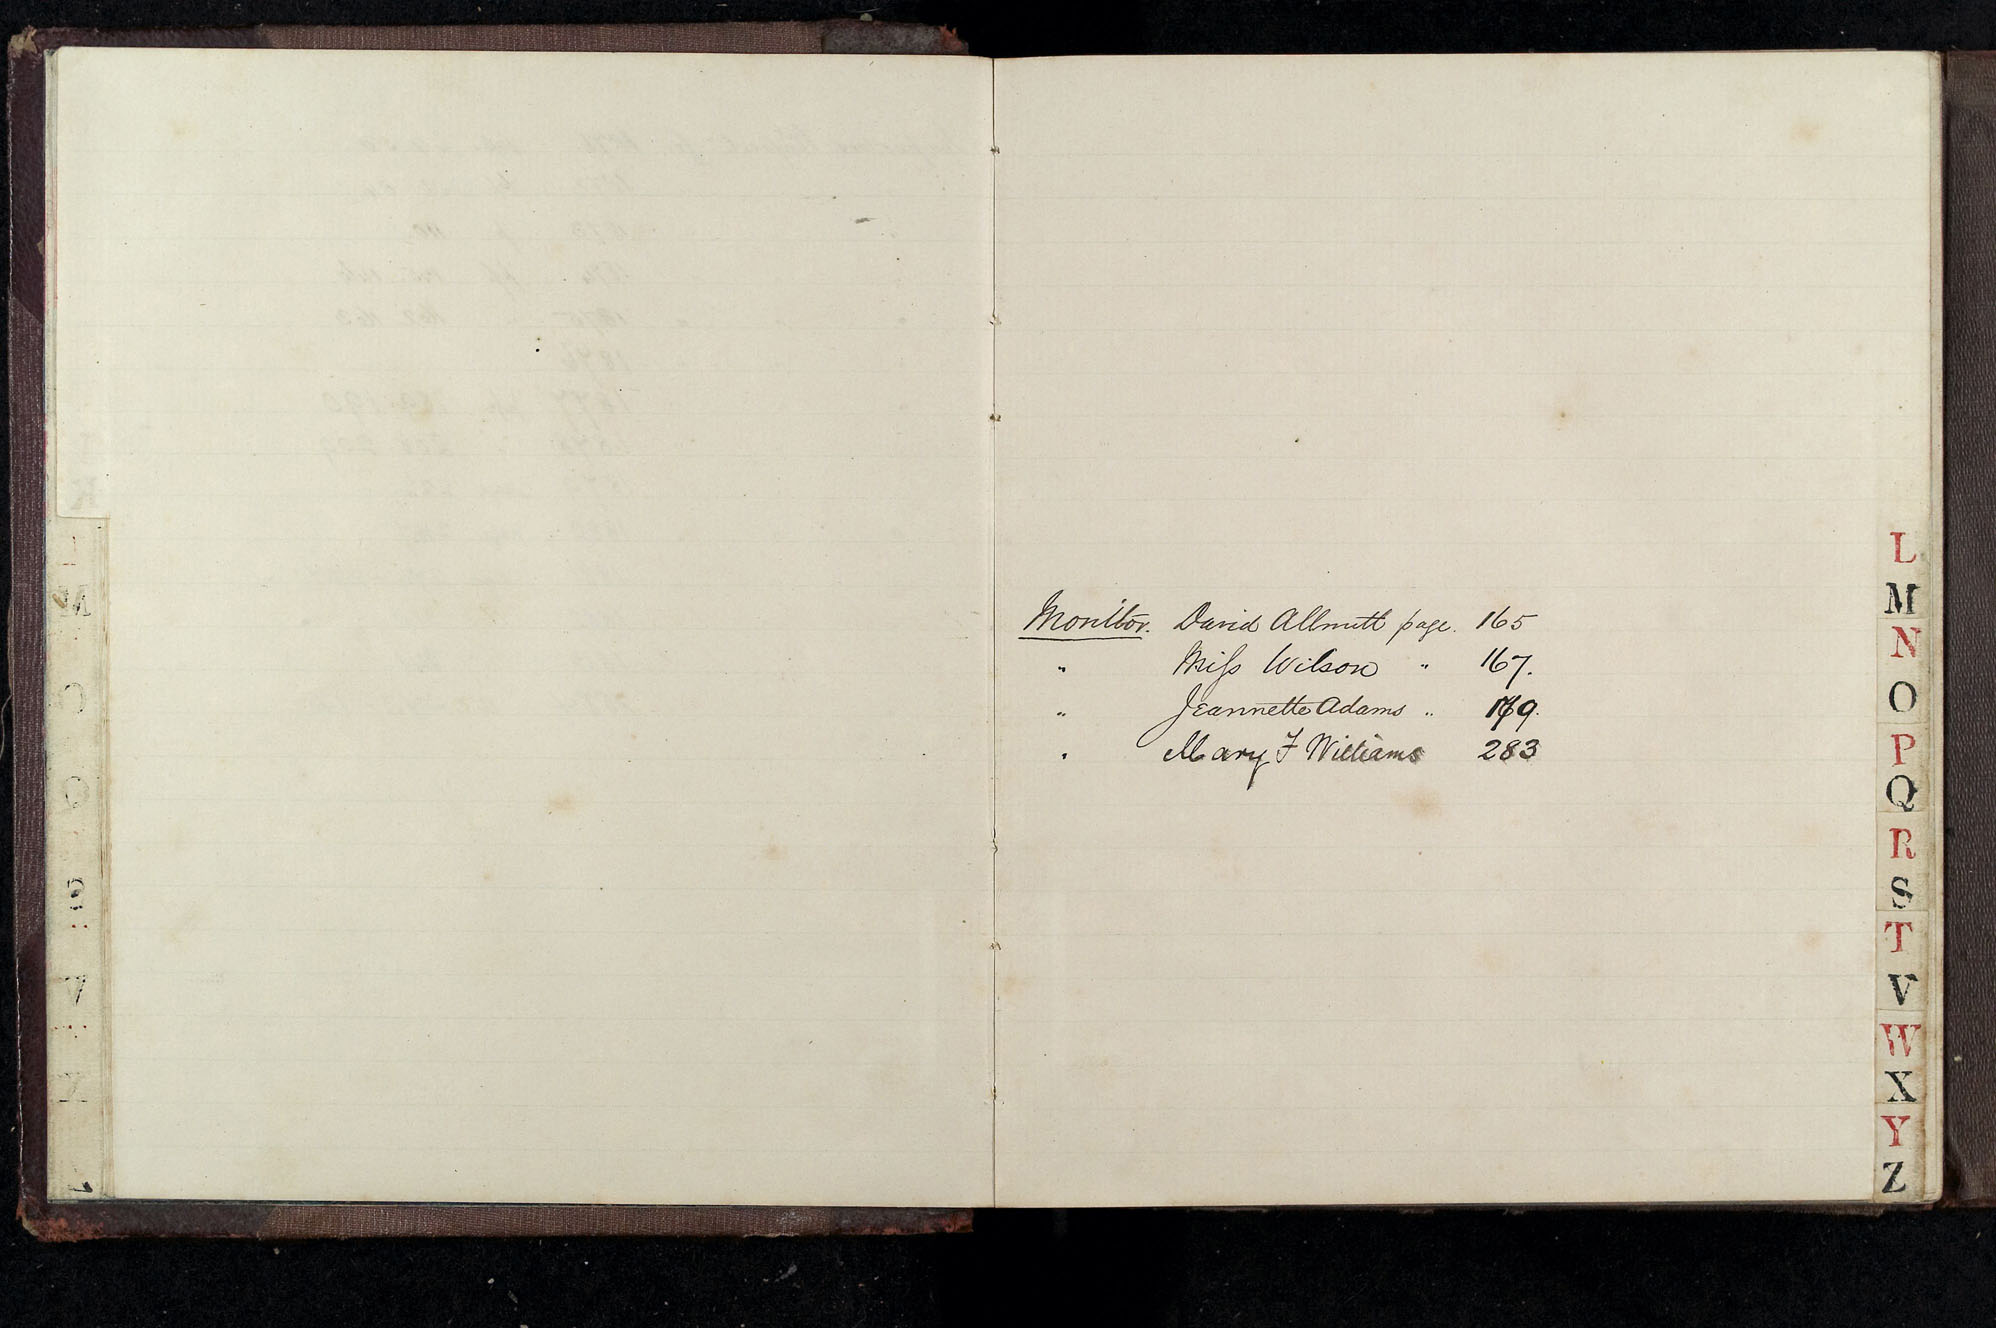 Monitor. David Allnutt page. 165
" Miss Wilson " 167.
" Jeannette Adams " 179.
" Mary F Williams 283
L
M
N
O
P
Q
R
S
T
V
W
X
Y
Z